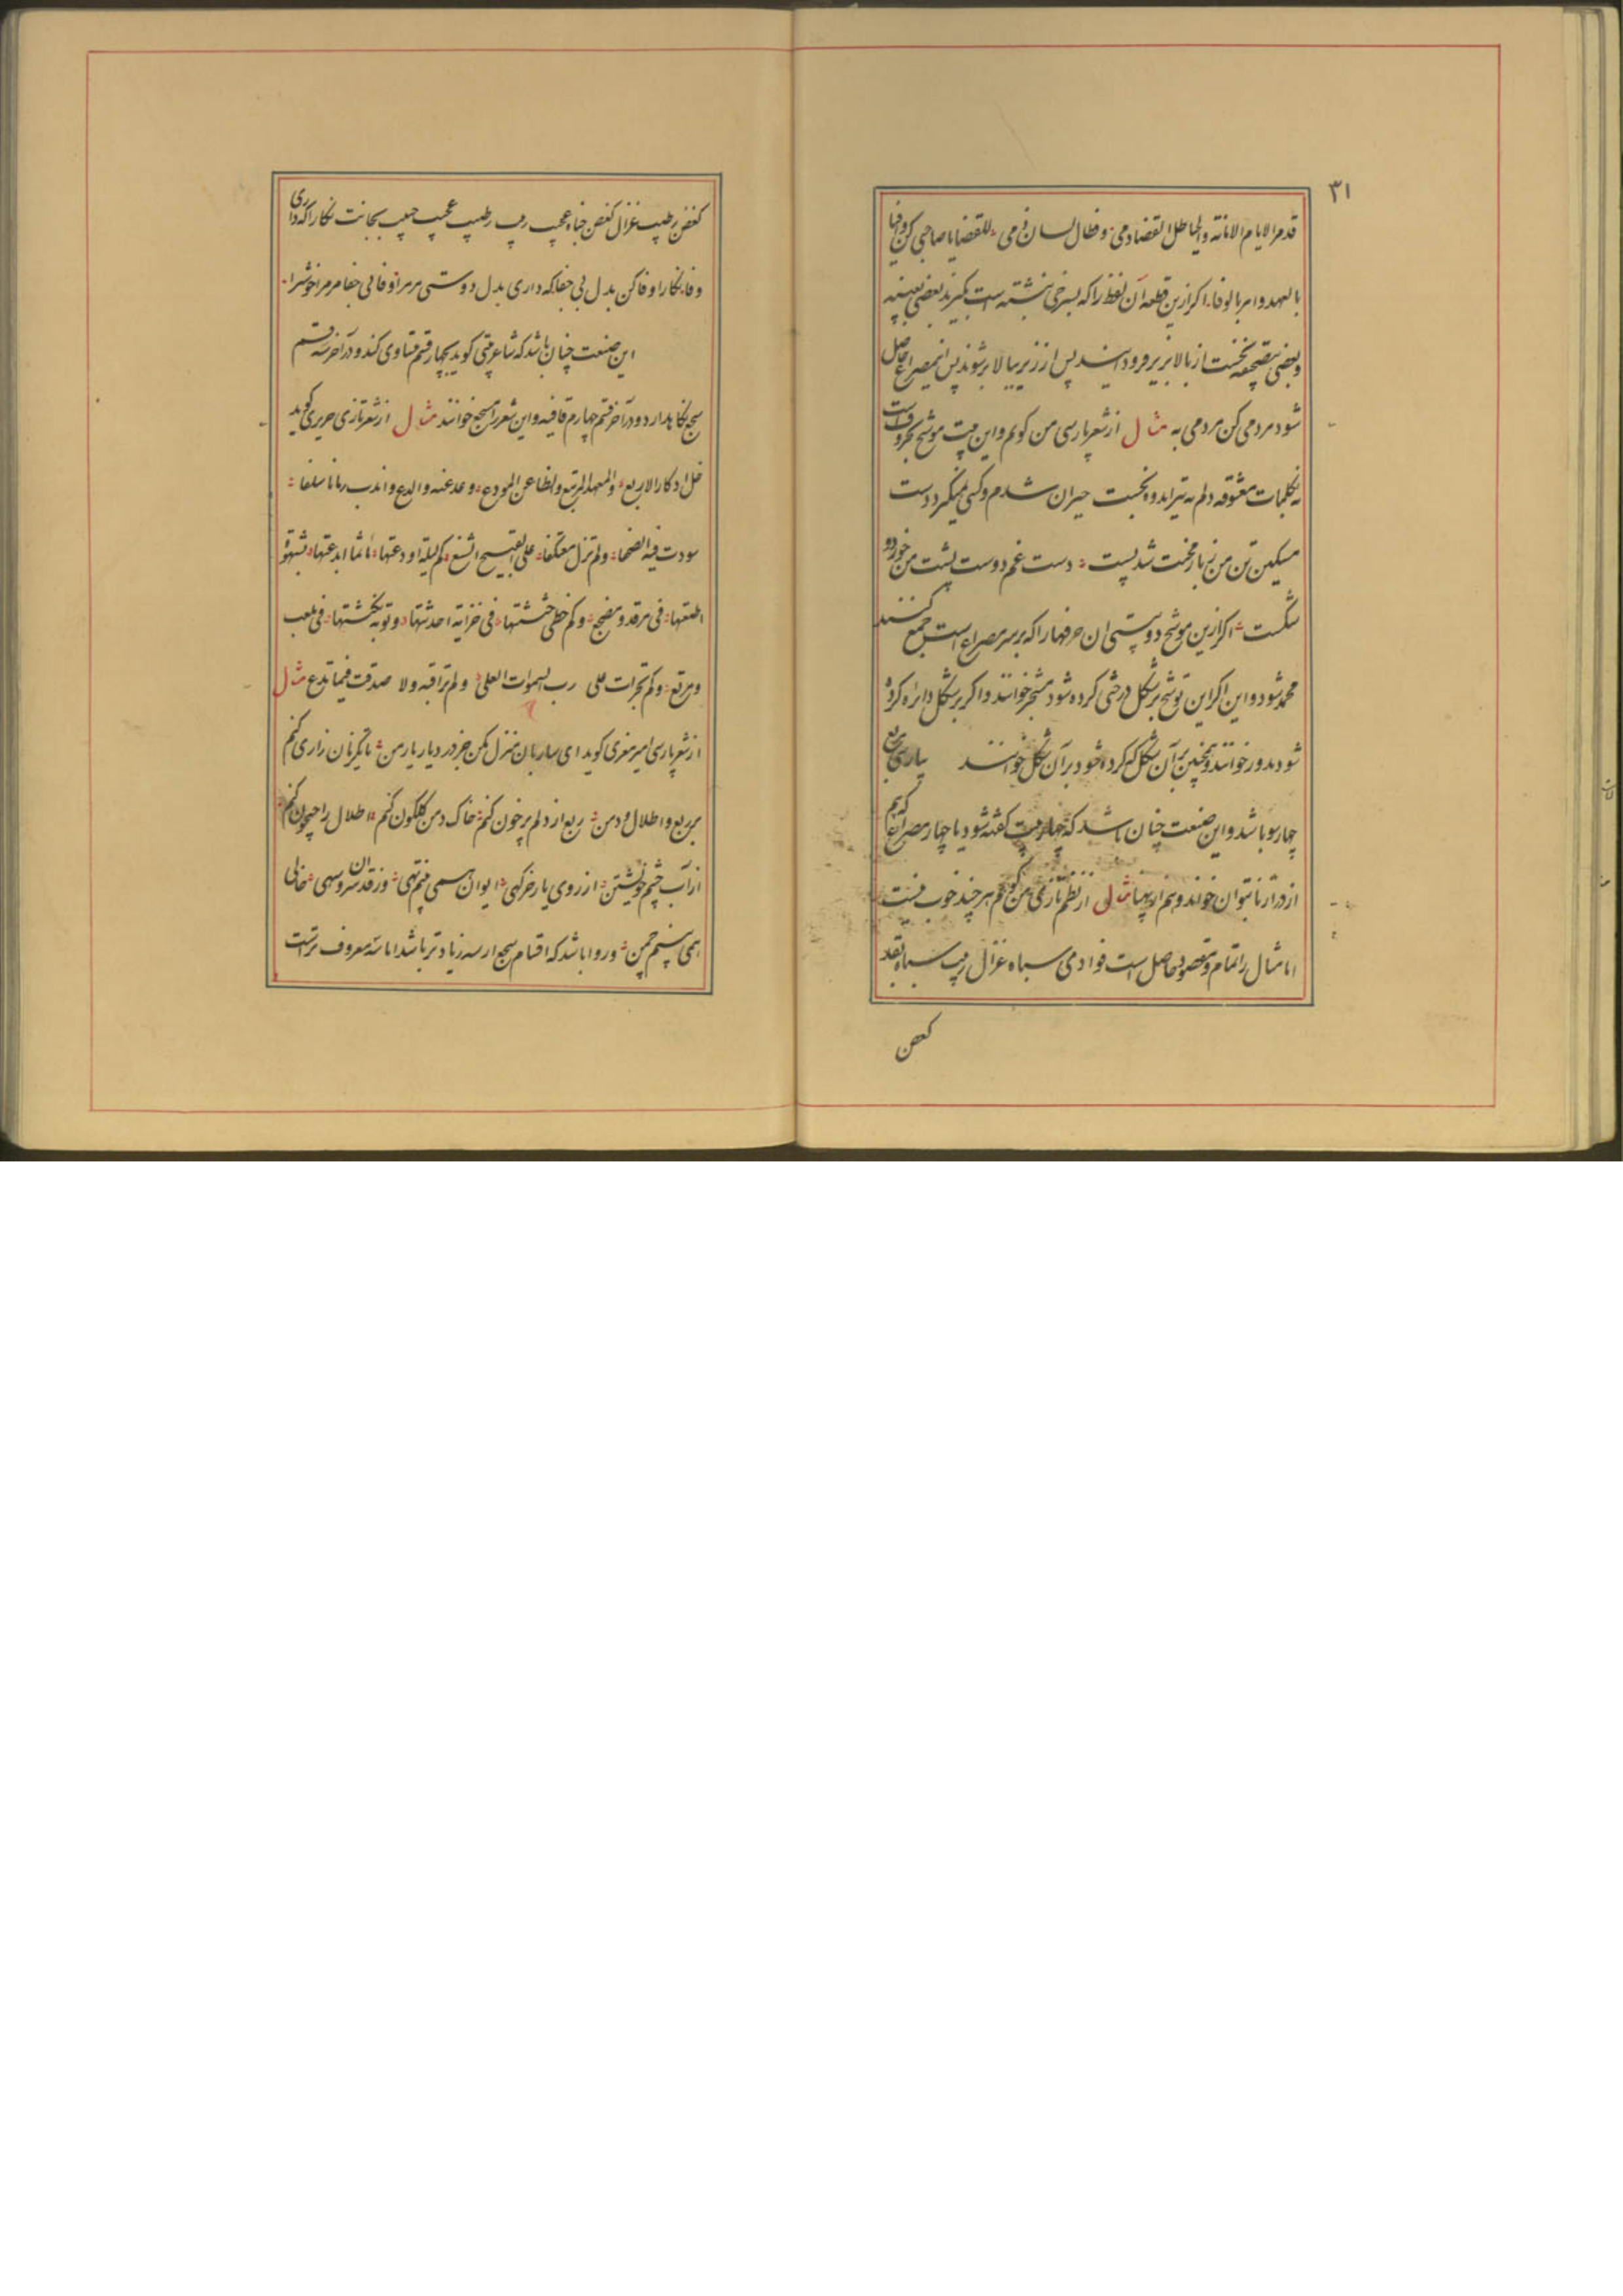 ۳۱
قدم الایام الامانة والحیا طل القضا دمی و طال لسان فمی للقضایا صاحبی کن وافیا
بالعهد وامر بالوفا اکر ازین قطعه آن لفظ را که بسرخی نبشته است بکیرند بعضی بعینه
و بعضی بتصحیف نخست از بالا بزیر فرود آیند پس از زیر ببالا بر شوند پس این مصراع حاصل
شود مردمی کن مردمی به مثال از شعر پارسی من کویم و این بیت موشح بحروف است
نه بکلمات معشوقه دلم به تیر اندوه بخست حیران شدم و کسی نمیکیرد دست
مسکین تن من ز بار محنت شد پست دست غم دوست پشت من خورد
شکست اکر ازین موشح دو بیتی ان حرفها را که بر سر مصراع است جمع کنند
محمد شود و این اکر این توشیح بر شکل درختی کرده شود مشجر خوانند و اکر بر شکل دایره کرده
شود مدور خوانند و همچنین بر آن شکل که کرده شود بر آن شکل خوانند پارسی مربع
چهار سو باشد و این صنعت چنان باشد که چهار بیت کفته شود یا چهار مصراع که هم
از درازنا بتوان خواند و هم از پهنا مثال از نظم تازی من کویم هر چند خوب نیست
اما مثال را تمام و مقصود حاصل است فوادی سباه غزال ربیب سباه بقد
کغصن
کغصن رطیب غزال کغصن جناه عجیب ربیب رطیب عجیب حبیب بجانت نکارا که داری
وفا نکارا وفا کن بدل بی جفا که داری بدل دوستی مر مرا وفا بی جفا مر مرا خوشترا
این صنعت چنان باشد که شاعر بیتی کوید بچهار قسم متساوی کند و در آخر سه قسم
سجع نکاهدارد و در آخر قسم چهارم قافیه و این شعر را مسجع خوانند مثال از شعر تازی حریری کوید
خل ادکار الاربع والمعهد المرتبع والظاعن المودع وعد عنه والدع واندب زمانا سلفا
سودت فیه الصحفا ولم تزل معتکفا علی القبیح الشنع کم لیلة اودعتها ماثما ابدعتها بشهوة
اطعتها فی مرقد و مضجع وکم خطی حثثتها فی خزیة احدثتها وتوبة نکثتها فی ملعب
ومرتع وکم تجرات علی رب السموات العلی ولم تراقبه ولا صدقت فیما تدع مثال
از شعر پارسی امیر معزی کوید ای ساربان منزل مکن جز در دیار یار من تا یکزمان زاری کنم
بر ربع و اطلال و دمن ربع از دلم پر خون کنم خاک دمن کلکون کنم اطلال را جیحون کنم
از آب چشم خویشتن از روی یار خرکهی ایوان همی بینم تهی وز قد ان سرو سهی خالی
همی بینم چمن و روا باشد که اقسام سجع از سه زیادتر باشد اما سه معروف تر است